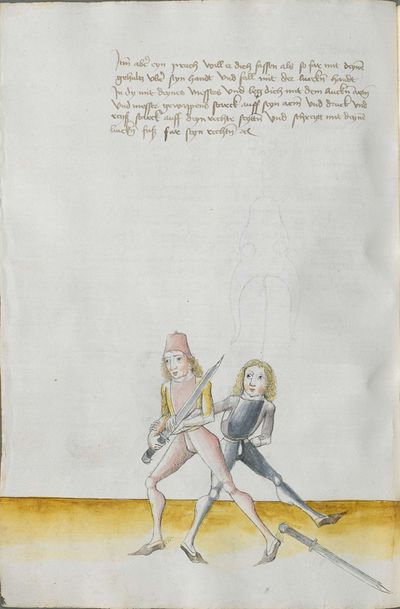 Im aber eyn pruch will er dich fassen als so far mit deyne
gehultz uber seyn handt und fall mit der lincken handt
In dy mit deynes messers und leg dich mit dem lincken arm
und messer gewappens starck auff seyn arm und druck und
reyß starck auff deyn rechte seytten und schreyt mit deyne
lincken fuß far seyn rechten etc